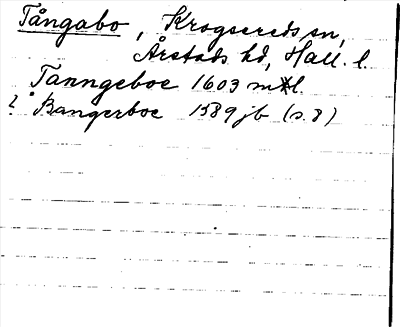 Tångabo, Krogsereds sn,
Årstads hd, Hall. l.
Tanngeboe 1603 mtl.
? Bangerboe 1589 jb (s. 8)